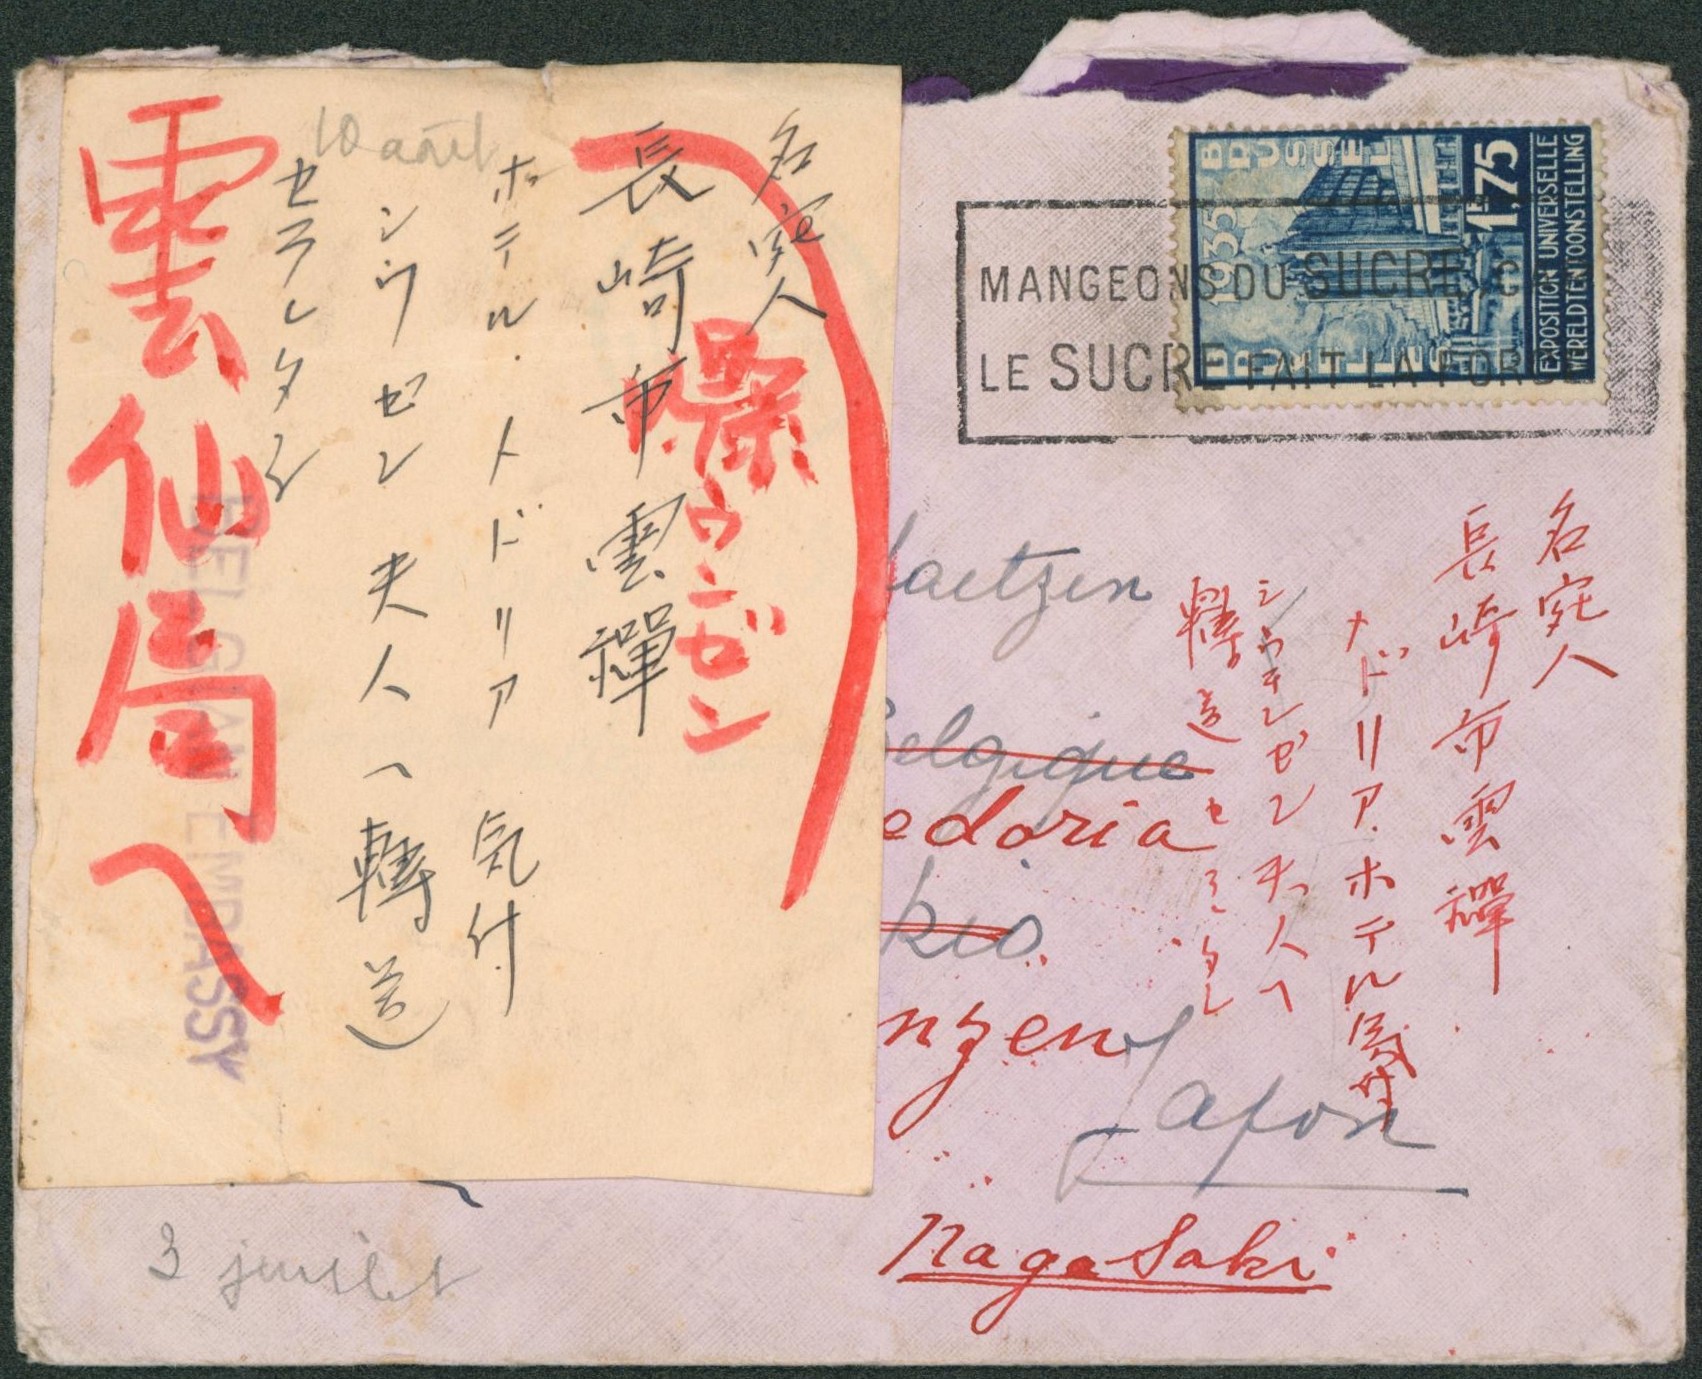 名宛人
長崎市雲禪
ホテル.
ドリア 気付
夫人へ轉送
セラレタシ
雲仙局へ
ウンゼン
10 août
BELGIAN EMBASSY
3 juillet
BRUSSEL
1935
BRUXELLES
1F,75
EXPOSITION UNIVERSELLE
WERELDTENTOONSTELLING
MANGEONS DU SUCRE, CAR
LE SUCRE FAIT LA FORCE
名宛人
長崎市雲禪
ドリア.ホテル気付
夫人へ
轉送セラレタシ
aetzen
Belgique
edoria
kio
nzen
Japon
Nagasaki